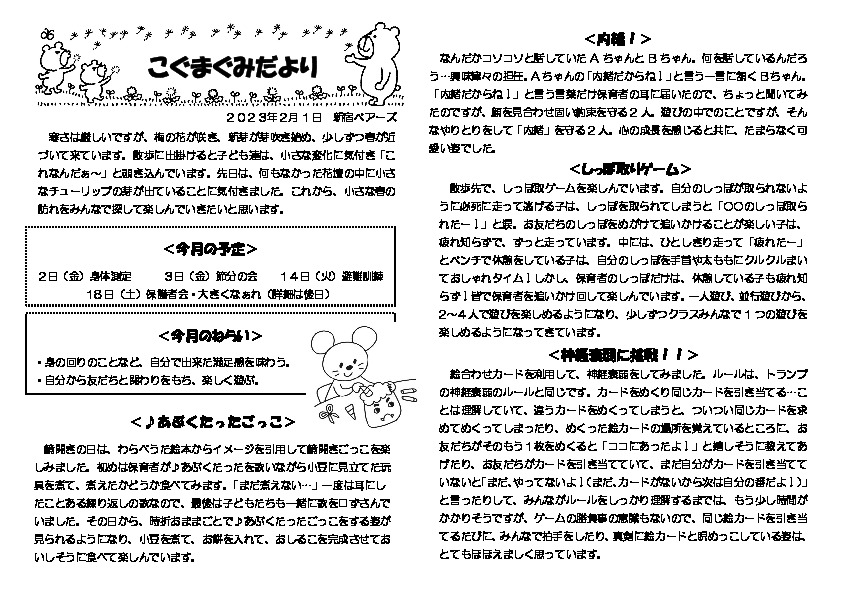 こぐまぐみだより
２０２３年２月１日　新宿ベアーズ
寒さは厳しいですが、梅の花が咲き、新芽が芽吹き始め、少しずつ春が近
づいて来ています。散歩に出掛けると子ども達は、小さな変化に気付き「こ
れなんだぁ～」と覗き込んでいます。先日は、何もなかった花壇の中に小さ
なチューリップの芽が出ていることに気付きました。これから、小さな春の
訪れをみんなで探して楽しんでいきたいと思います。
＜今月の予定＞
２日（金）身体測定　３日（金）節分の会　１４日（火）避難訓練
１８日（土）保護者会・大きくなぁれ（詳細は後日）
＜今月のねらい＞
・身の回りのことなど、自分で出来た満足感を味わう。
・自分から友だちと関わりをもち、楽しく遊ぶ。
＜♪あぶくたったごっこ＞
鏡開きの日は、わらべうた絵本からイメージを引用して鏡開きごっこを楽
しみました。初めは保育者が♪あぶくたったを歌いながら小豆に見立てた玩
具を煮て、煮えたかどうか食べてみます。「まだ煮えない…」一度は耳にし
たことある繰り返しの歌なので、最後は子どもたちも一緒に歌を口ずさんで
いました。その日から、時折おままごとで♪あぶくたったごっこをする姿が
見られるようになり、小豆を煮て、お餅を入れて、おしるこを完成させてお
いしそうに食べて楽しんでいます。
＜内緒！＞
なんだかコソコソと話していたＡちゃんとＢちゃん。何を話しているんだろ
う…興味津々の担任。Ａちゃんの「内緒だからね！」と言う一言に頷くＢちゃん。
「内緒だからね！」と言う言葉だけ保育者の耳に届いたので、ちょっと聞いてみ
たのですが、顔を見合わせ固い約束を守る２人。遊びの中でのことですが、そん
なやりとりをして「内緒」を守る２人。心の成長を感じると共に、たまらなく可
愛い姿でした。
＜しっぽ取りゲーム＞
散歩先で、しっぽ取ゲームを楽しんでいます。自分のしっぽが取られないよ
うに必死に走って逃げる子は、しっぽを取られてしまうと「〇〇のしっぽ取ら
れたー！」と涙。お友だちのしっぽをめがけて追いかけることが楽しい子は、
疲れ知らずで、ずっと走っています。中には、ひとしきり走って「疲れたー」
とベンチで休憩をしている子は、自分のしっぽを手首や太ももにクルクルまい
ておしゃれタイム！しかし、保育者のしっぽだけは、休憩している子も疲れ知
らず！皆で保育者を追いかけ回して楽しんでいます。一人遊び、並行遊びから、
２～４人で遊びを楽しめるようになり、少しずつクラスみんなで１つの遊びを
楽しめるようになってきています。
＜神経衰弱に挑戦！！＞
絵合わせカードを利用して、神経衰弱をしてみました。ルールは、トランプ
の神経衰弱のルールと同じです。カードをめくり同じカードを引き当てる…こ
とは理解していて、違うカードをめくってしまうと、ついつい同じカードを求
めてめくってしまったり、めくった絵カードの場所を覚えているところに、お
友だちがそのもう１枚をめくると「ココにあったよ！」と嬉しそうに教えてあ
げたり、お友だちがカードを引き当てていて、まだ自分がカードを引き当てて
いないと「まだ、やってないよ！（まだ、カードがないから次は自分の番だよ！）」
と言ったりして、みんながルールをしっかり理解するまでは、もう少し時間が
かかりそうですが、ゲームの勝負事の意識もないので、同じ絵カードを引き当
てるたびに、みんなで拍手をしたり、真剣に絵カードと睨めっこしている姿は、
とてもほほえましく思っています。